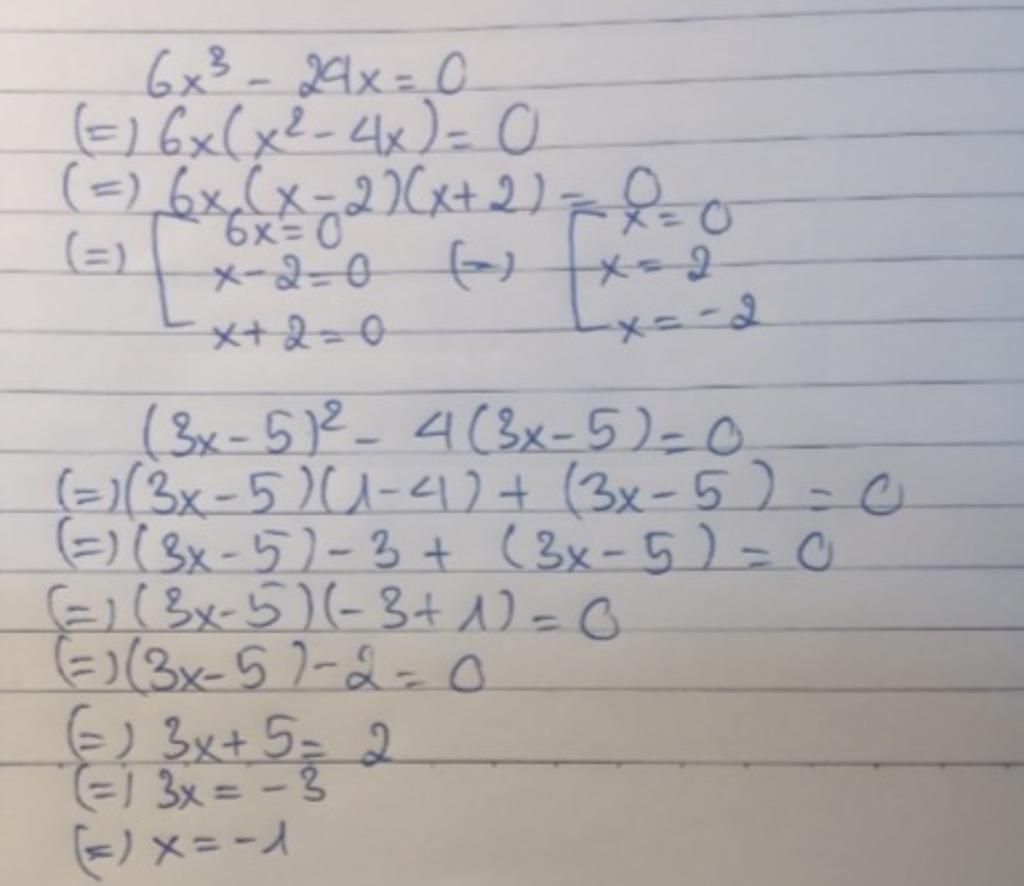 6x³ - 24x = 0
(=) 6x(x² - 4x) = 0
(=) 6x(x - 2)(x + 2) = 0
(=) [ 6x = 0 (=) [ x = 0
x - 2 = 0 x = 2
x + 2 = 0 x = -2
(3x - 5)² - 4(3x - 5) = 0
(=) (3x - 5)(1 - 4) + (3x - 5) = 0
(=) (3x - 5) - 3 + (3x - 5) = 0
(=) (3x - 5)(-3 + 1) = 0
(=) (3x - 5) - 2 = 0
(=) 3x + 5 = 2
(=) 3x = -3
(=) x = -1